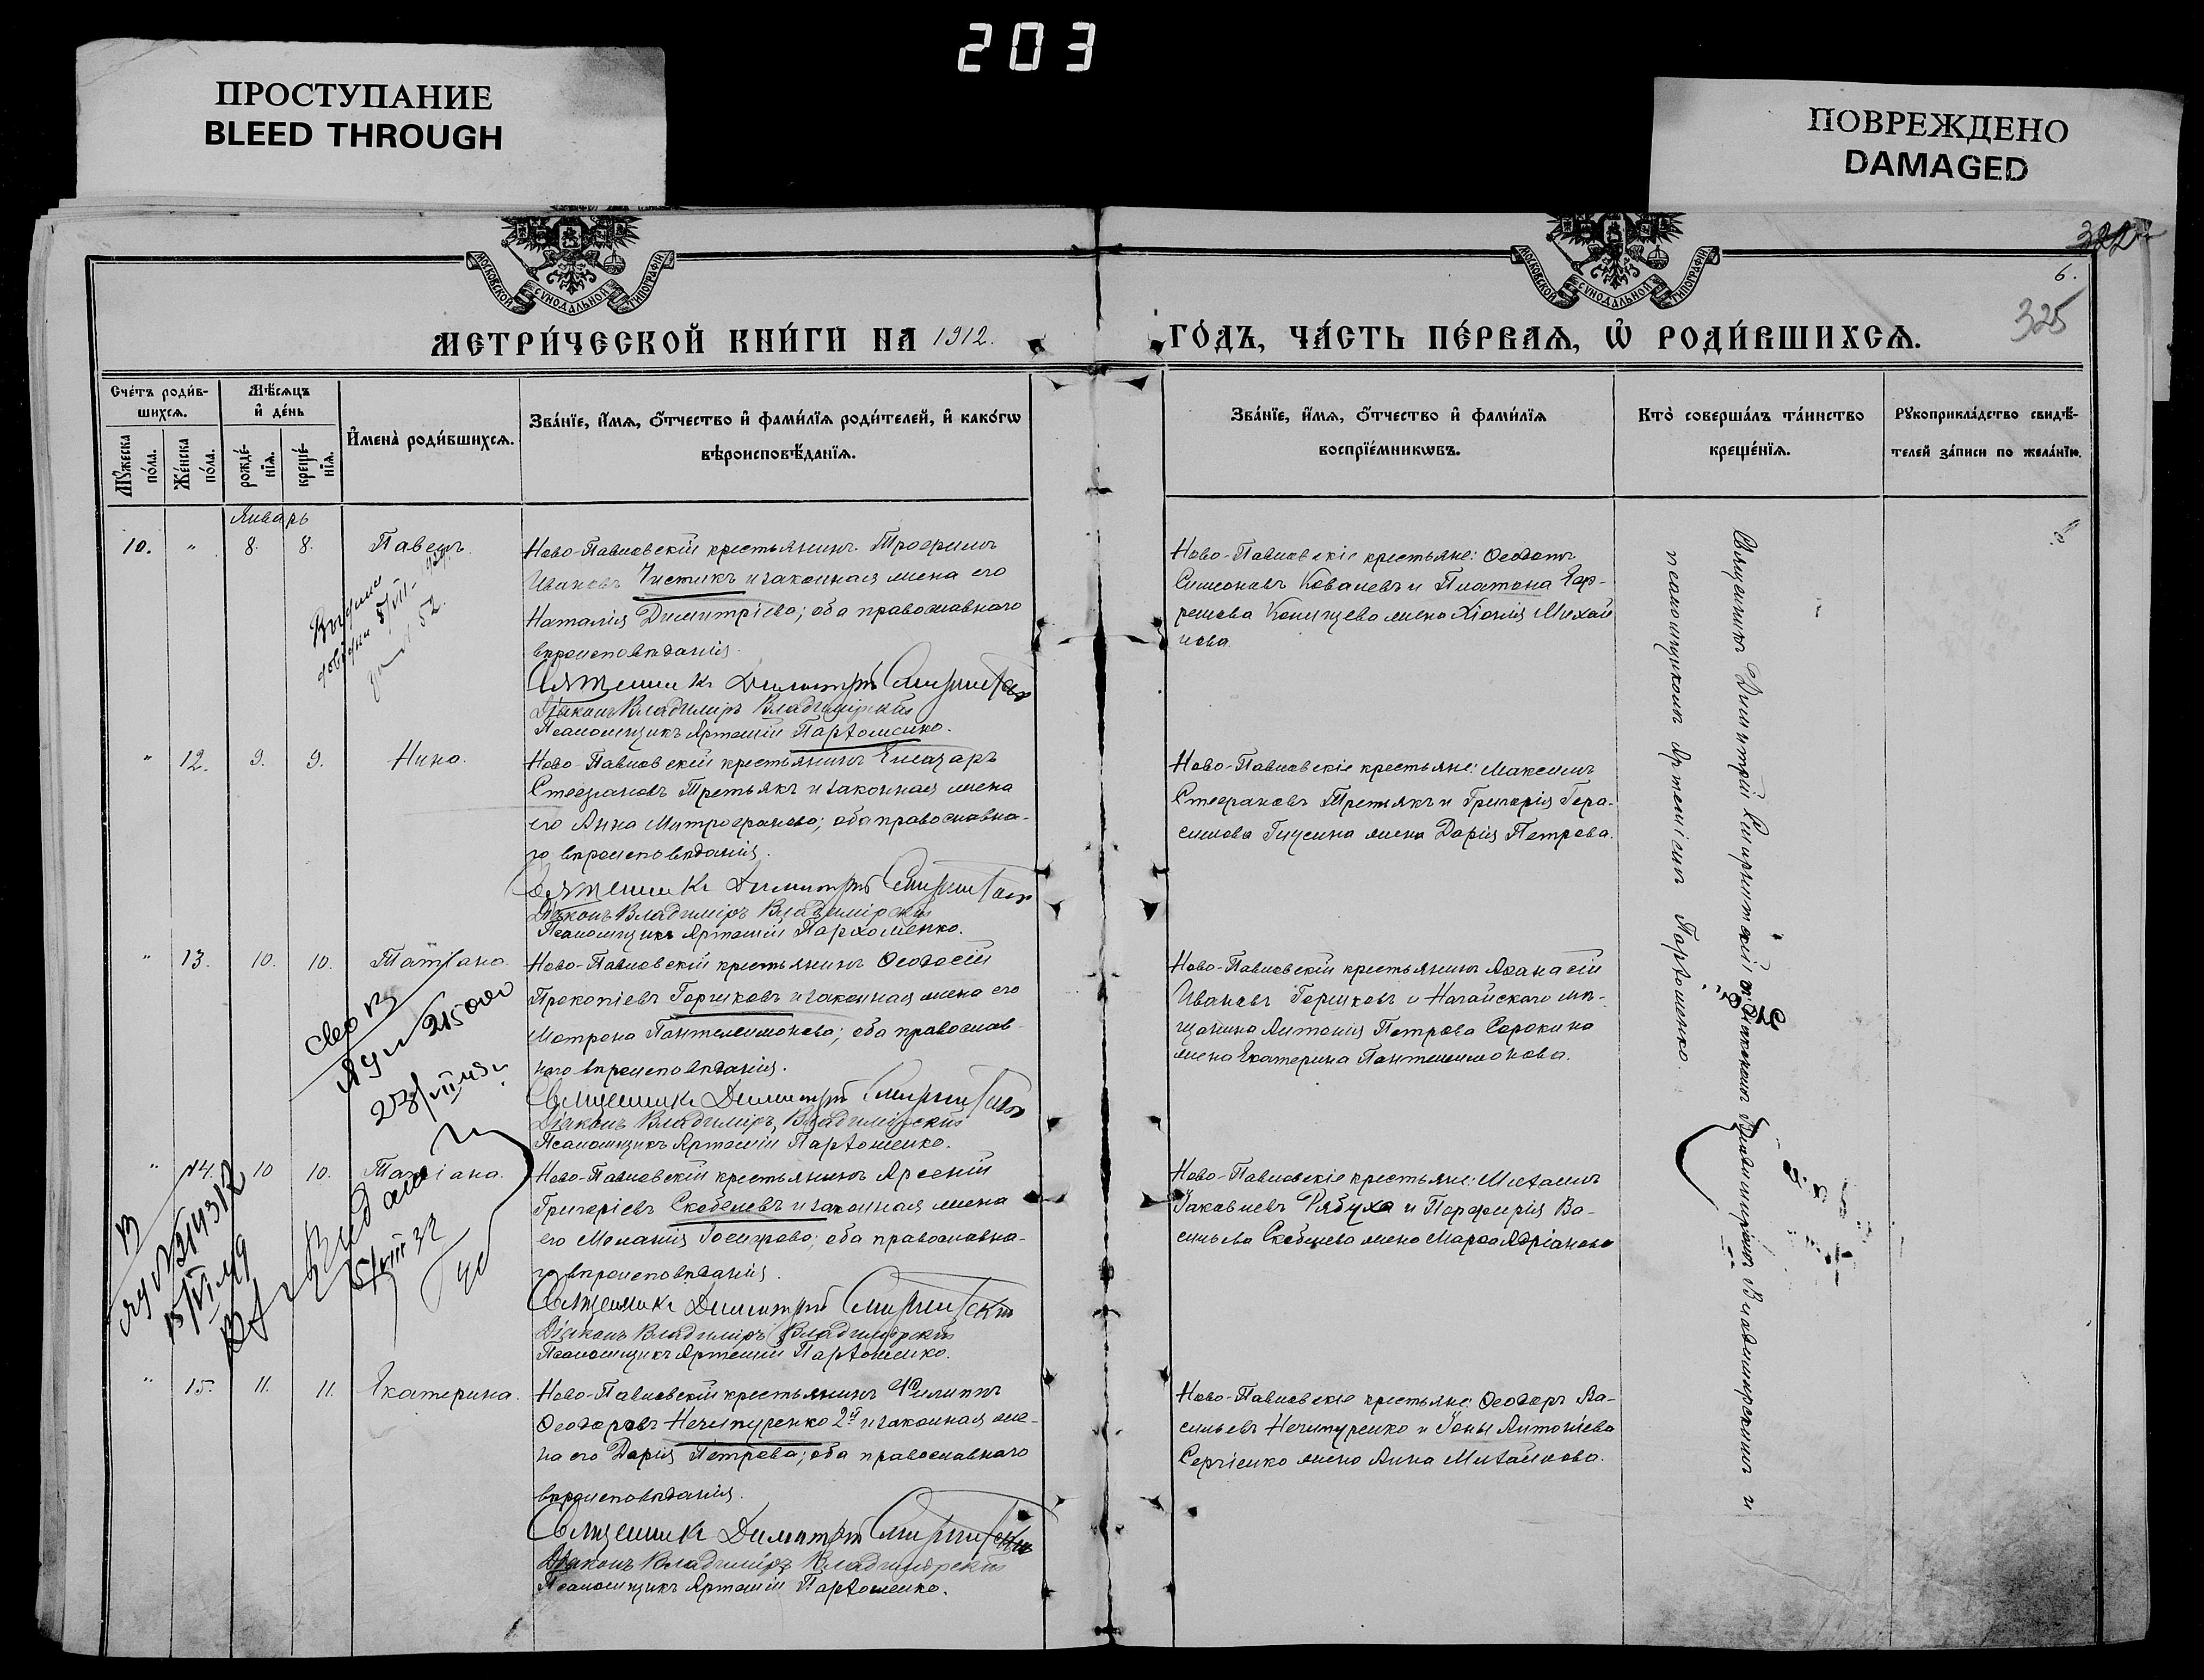 203
ПРОСТУПАНИЕ
BLEED THROUGH
ПОВРЕЖДЕНО
DAMAGED
МОСКОВСКОЙ СѴНОДАЛЬНОЙ ТИПОГРАФІИ
МОСКОВСКОЙ СѴНОДАЛЬНОЙ ТИПОГРАФІИ
322
6.
325
МЕТРИ́ЧЕСКОЙ КНИ́ГИ НА 1912.
ГО́ДЪ, ЧА́СТЬ ПЕ́РВАѦ, Ѡ҆ РОДИ́ВШИХСѦ.
Сче́тъ роди́в-
шихсѧ.
Мꙋ́жеска по́ла.
Же́нска по́ла.
Мѣ́сѧцъ
и҆ де́нь
рожде́-
нїѧ.
креще́-
нїѧ.
И҆мена̀ роди́вшихсѧ.
Зва́нїе, и҆́мѧ, ѻ҆́тчество и҆ фами́лїѧ роди́телей, и҆ како́гѡ
вѣроисповѣ́данїѧ.
Зва́нїе, и҆́мѧ, ѻ҆́тчество и҆ фами́лїѧ
воспрїе́мникѡвъ.
Кто̀ соверша́лъ та́инство
креще́нїѧ.
Рꙋкоприкла́дство свидѣ́-
телей за́писи по жела́нїю.
Январь
10. " 8. 8. Павелъ.
Ново-Павловскій крестьянинъ Трофимъ
Ивановъ Чистикъ и законная жена его
Наталія Димитріева; оба православнаго
вѣроисповѣданія.
Священникъ Димитрій
Діаконъ Владиміръ Владимірскій
Псаломщикъ Артемій Пархоменко.
Ново-Павловскіе крестьяне: Ѳеодотъ
Симеоновъ Ковалевъ и Платона Ефр-
ремова жена Хіонія Михай
лова.
5/VII-
52.
" 12. 9. 9. Нина.
Ново-Павловскій крестьянинъ Елеазаръ
Стефановъ Третьякъ и законная жена
его Анна Митрофанова; оба православна-
го вѣроисповѣданія.
Священникъ Димитрій
Діаконъ Владиміръ Владимірскій
Псаломщикъ Артемій Пархоменко.
Ново-Павловскіе крестьяне: Максимъ
Стефановъ Третьякъ и Григорія Гера-
симова Гицсина жена Дарія Петрова.
" 13. 10. 10. Татіана.
Ново-Павловскій крестьянинъ Ѳеодосій
Прокопіевъ Горшковъ и законная жена его
Матрона Пантелеимонова; оба православ-
наго вѣроисповѣданія.
Священникъ Димитрій
Діаконъ Владиміръ Владимірскій
Псаломщикъ Артемій Пархоменко.
Ново-Павловскій крестьянинъ Аѳанасій
Ивановъ Горшковъ и Ногайскаго мѣ-
щанина Антонія Петрова Сорокина
жена Екатерина Пантелеимонова.
" 14. 10 10. Татіана.
Ново-Павловскій крестьянинъ Арсеній
Григоріевъ Скобелевъ и законная жена
его Меланія Іосифова; оба православна-
го вѣроисповѣданія.
Священникъ Димитрій
Діаконъ Владиміръ Владимірскій
Псаломщикъ Артемій Пархоменко.
Ново-Павловскіе крестьяне: Михаилъ
Іаковлевъ Рябуха и Порфирія Ва-
сильева Скобелева жена Марѳа Адріанова
" 15. 11. 11. Екатерина.
Ново-Павловскій крестьянинъ Филиппъ
Ѳеодоровъ Нечипуренко 2й и законная же-
на его Дарія Петрова; оба православнаго
вѣроисповѣданія.
Священникъ Димитрій
Діаконъ Владиміръ Владимірскій
Псаломщикъ Артемій Пархоменко.
Ново-Павловскіе крестьяне: Ѳеодоръ Ва-
сильевъ Нечипуренко и Іоны Антоніева
Сергіенко жена Анна Михаилова.
Священникъ Димитрій съ діакономъ Владиміромъ Владимірскимъ и
псаломщикомъ Артеміемъ Пархоменко.